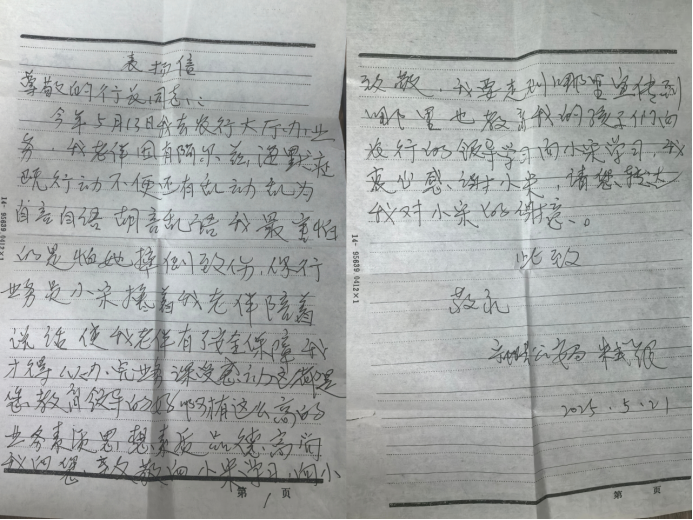 表扬信
尊敬的行长同志:
今年5月13日我去农行大厅办业
务,我老伴因有阿尔兹海默症
既行动不便还有乱动乱为
自言自语胡言乱语我最害怕
的是怕她摔倒致伤,你行
业务员小宋搀着我老伴陪着
说话使我老伴有了安全保障我
才得以办完业务深受感动这都是
您教育领导的好才有这么高的
业务素质思想素质品德高尚
我向您致敬向小宋学习向小
第 1 页
致敬,我要走到哪里宣传到
哪里也教育我的孩子们向
农行的领导学习向小宋学习,我
衷心感谢小宋,请您转达
我对小宋的谢意。
此致
敬礼
2025.5.21
第 页
14-95639 0412×1
14-95639 0412×1